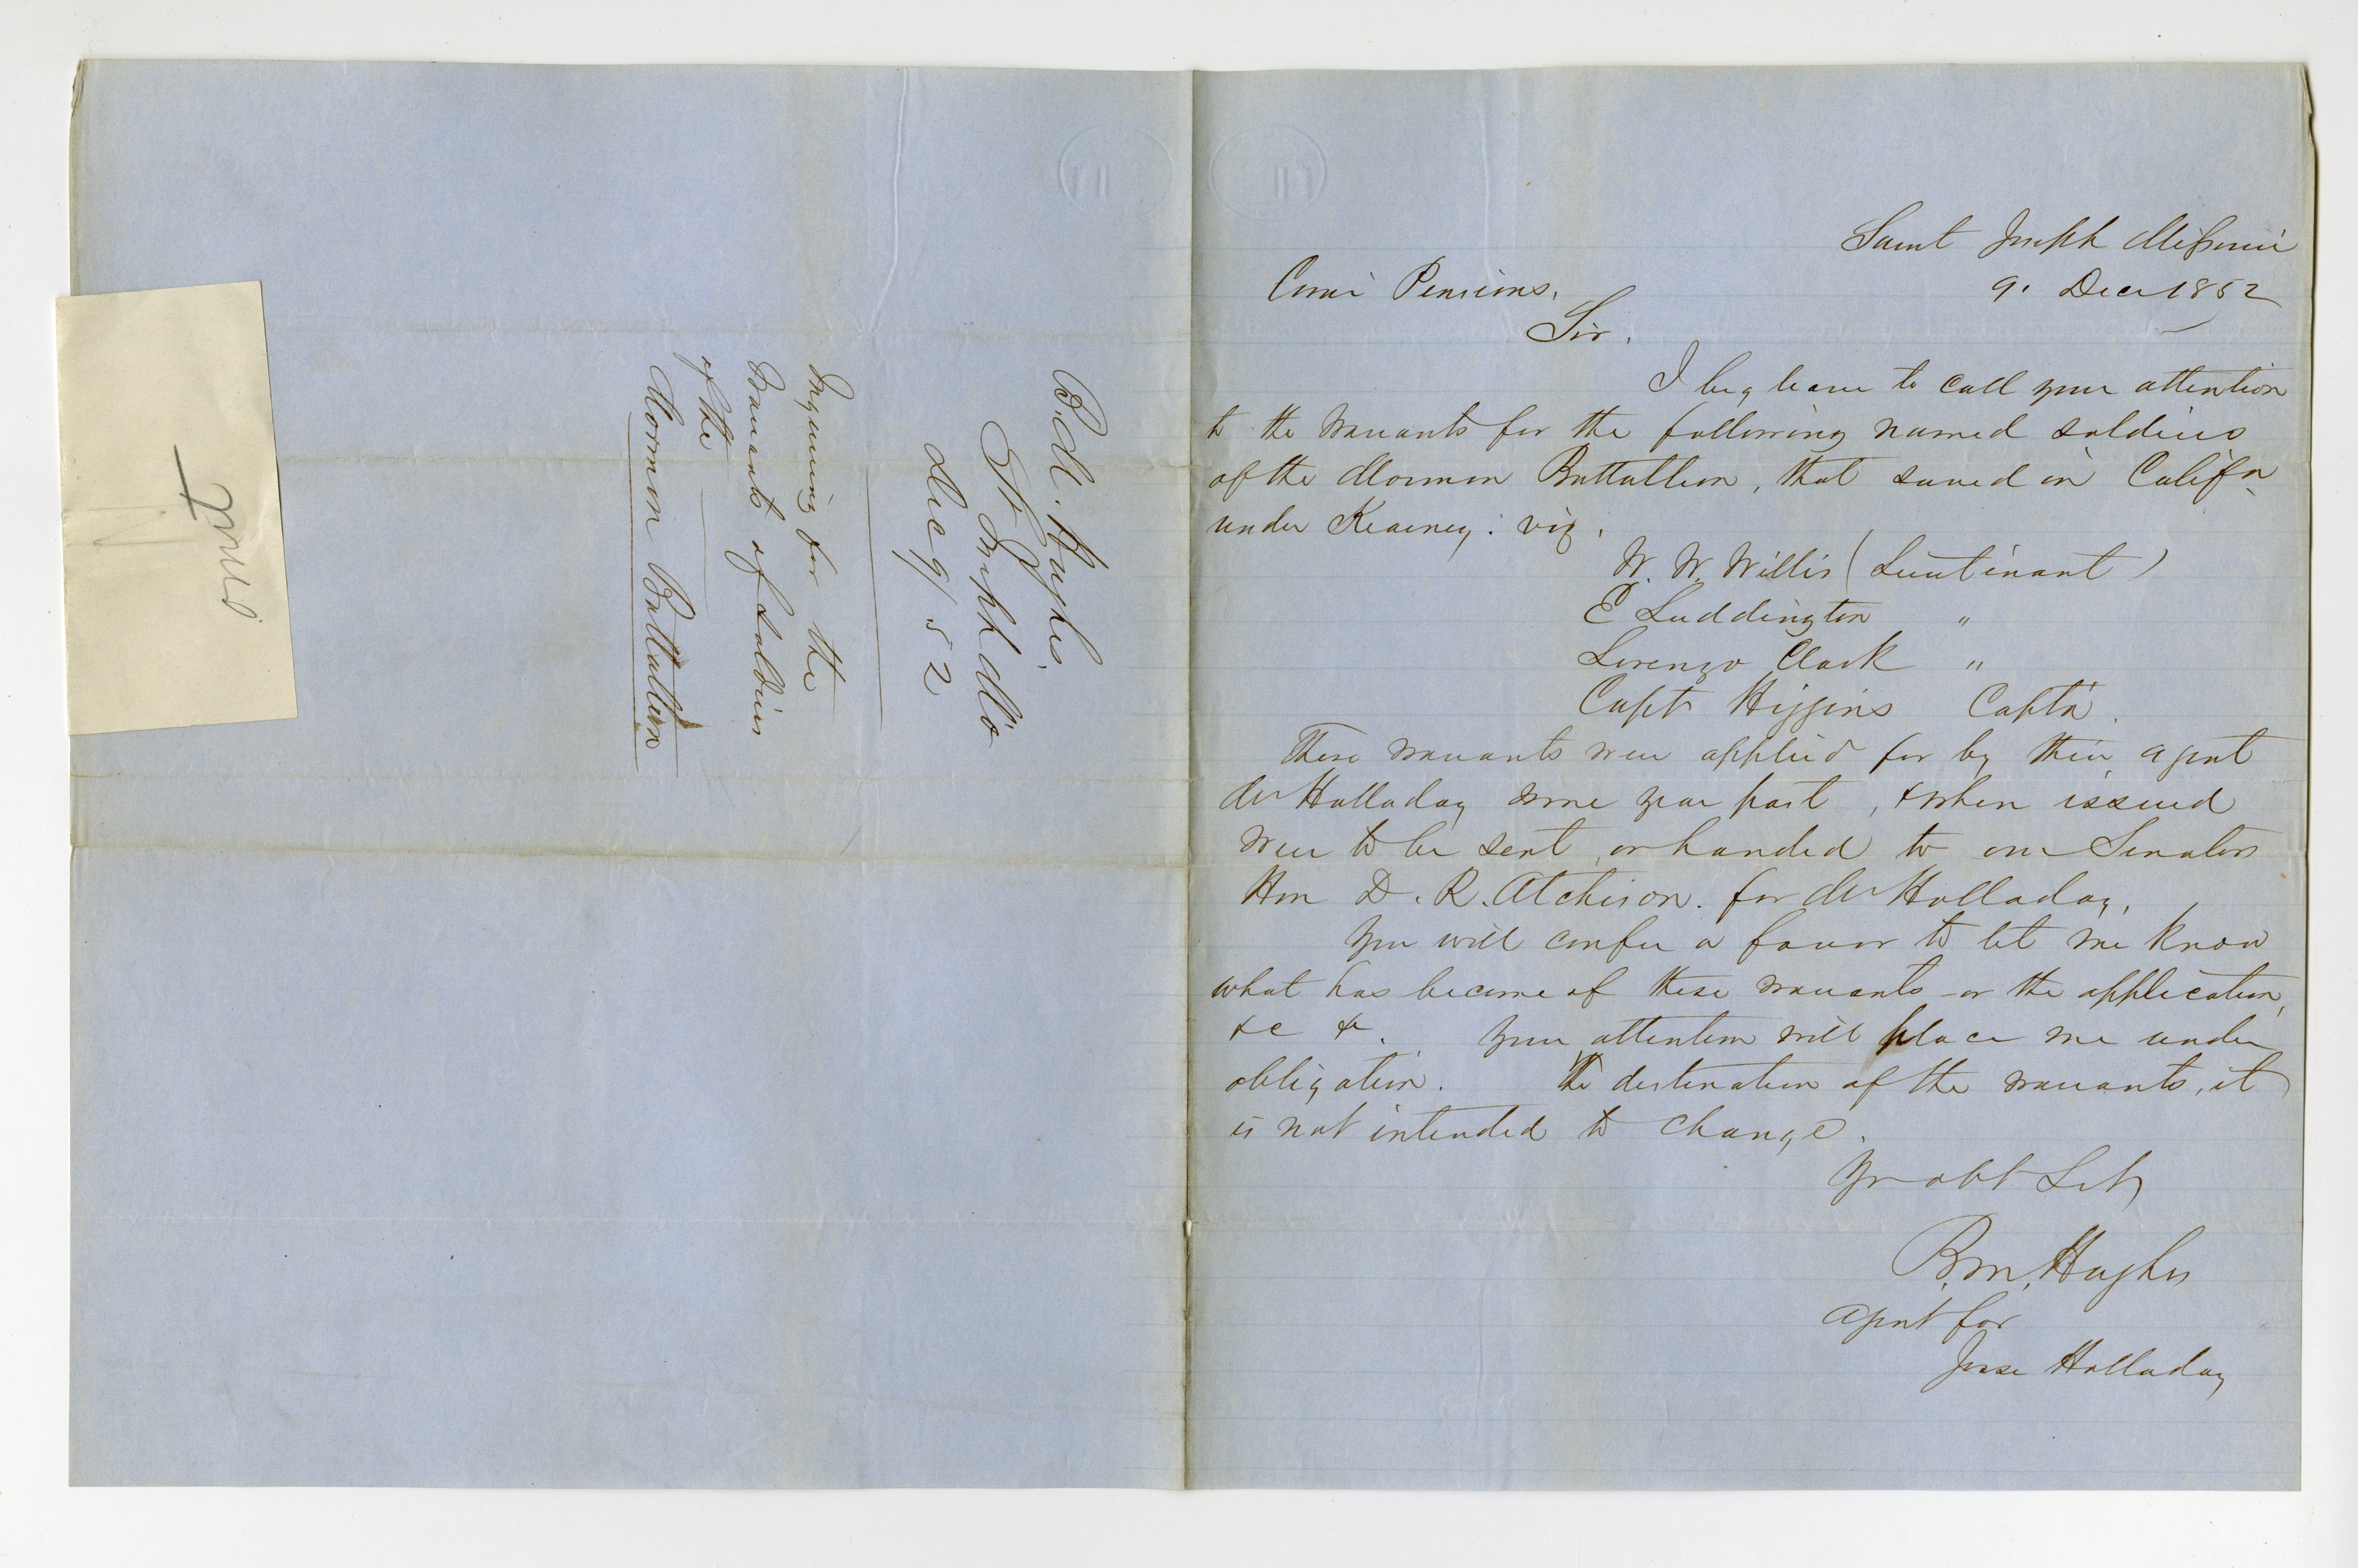 B.M. Hughes.
St Joseph Mo
Dec 9/52
Inquiring for the
Warrants of soldiers
of the
Mormon Battallion
Saint Joseph Missouri
9. Decr 1852
Comr Pensions,
Sir.
I beg leave to call your attention
to the Warrants for the following named soldiers
of the Mormon Battallion, that served in Califa
under Kearney: viz.
W. W. Willis (Lieutinant)
E Luddington "
Lorenzo Clark "
Capt Higgins Captn.
These warrants were applied for by their agent
Mr Holladay some year past, & when issued
were to be sent, or handed to our Senator
Hon D. R. Atchison. for Mr Holladay,
You will confer a favor to let me know
what has become of these warrants or the application,
&c &c. Your attention will place me under
obligation. The destination of the warrants, it
is not intended to change.
Yr obt Svt
B.M. Hughes
Agent for
Jesse Holladay